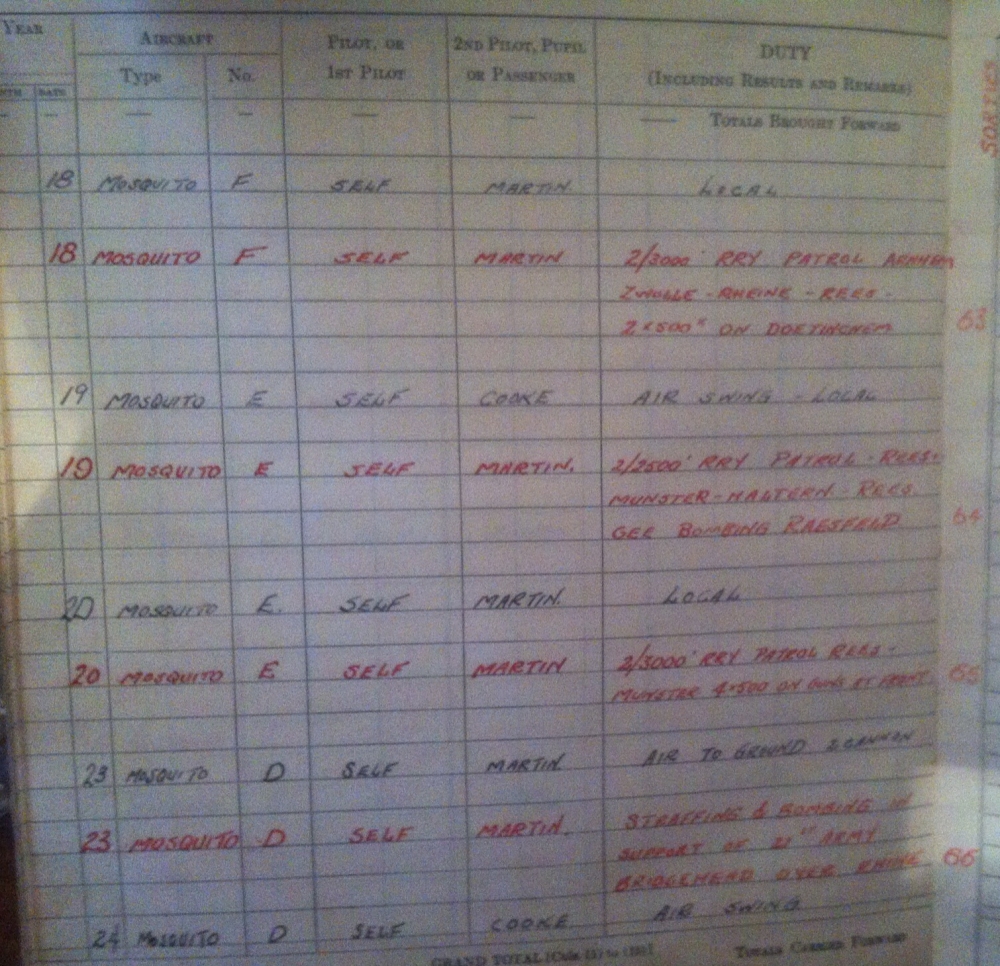 YEAR AIRCRAFT PILOT, OR 2ND PILOT, PUPIL DUTY
Type No. 1ST PILOT OR PASSENGER (INCLUDING RESULTS AND REMARKS)
DATE
— — — — — — TOTALS BROUGHT FORWARD
SORTIES
18 MOSQUITO F SELF MARTIN. LOCAL
18 MOSQUITO F SELF MARTIN 2/3000' RRY PATROL ARNHEM
ZWOLLE - RHEINE - REES -
2×500" ON DOETINCHEM 63
19 MOSQUITO E SELF COOKE AIR SWING - LOCAL
19 MOSQUITO E SELF MARTIN. 2/2500' RRY PATROL - REES-
MUNSTER-HALTERN - REES.
GEE BOMBING RAESFELD 64
20 MOSQUITO E. SELF MARTIN. LOCAL
20 MOSQUITO E SELF MARTIN 2/3000' RRY PATROL REES -
MUNSTER 4×500 ON GUNS AT FRONT. 65
23 MOSQUITO D SELF MARTIN AIR TO GROUND CANNON
23 MOSQUITO D SELF MARTIN. STRAFFING & BOMBING IN
SUPPORT OF 21ST ARMY
BRIDGEHEAD OVER RHINE 66
24 MOSQUITO D SELF COOKE AIR SWING
GRAND TOTAL [Cols. to (10)] TOTALS CARRIED FORWARD